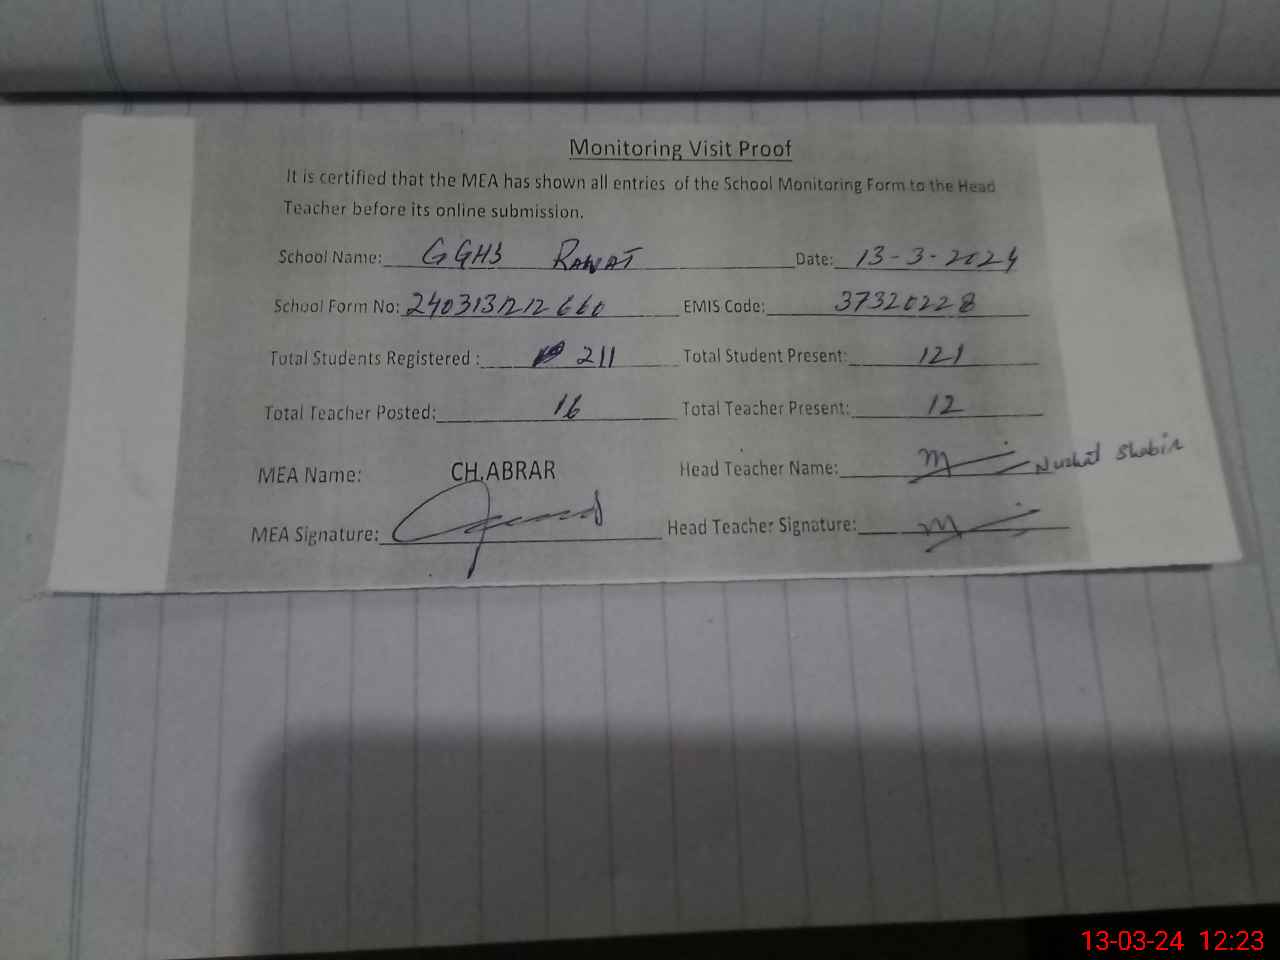 Monitoring Visit Proof
It is certified that the MEA has shown all entries of the School Monitoring Form to the Head
Teacher before its online submission.
School Name: GGHS RAWAT Date: 13-3-2024
School Form No: 2403131212660 EMIS Code: 37320228
Total Students Registered : 211 Total Student Present: 121
Total Teacher Posted: 16 Total Teacher Present: 12
MEA Name: CH.ABRAR Head Teacher Name: Nushat Shabir
MEA Signature: Head Teacher Signature:
13-03-24 12:23